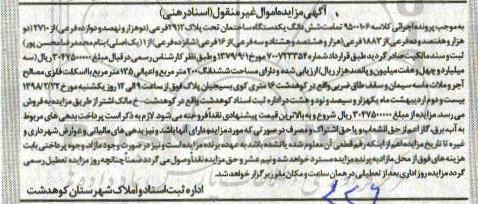 آگهی مزایده اموال غیر منقول (اسناد رهنی)
به موجب پرونده اجرائی کلاسه ۹۵۰۰۱۰۶ تمامت شش دانگ یکدستگاه ساختمان تحت پلاک ۲۹۱۲ فرعی (دو هزار و نهصد و دوازده فرعی) از ۲۷۱۰ (دو
هزار و هفتصد و ده فرعی) از ۱۸۸۳ فرعی (هزار و هشتصد و هشتاد و سه فرعی) از ۱۶ فرعی (شانزده فرعی) از ۱ (یک اصلی) بنام محمدرضا محسن پور
ثبت و سند مالکیت صادر گردید، طبق قرارداد شماره ۷۰۰۷۲۳۳۵۴ ۱۳۷۹/۹/۱ و طبق نظر کارشناس رسمی در قبال مبلغ ۳۰۴۷۵۰۰۰۰۰ ریال (سه
میلیارد و چهل و هفت میلیون و پانصد هزار ریال) ارزیابی شده و دارای مساحت ششدانگ ۲۰۰ متر مربع و اعیانی ۱۳۵ متر مربع با اسکلت فلزی مصالح
آجر و ملات ماسه سیمان و سقف طاق ضربی واقع در کوهدشت ۱۶ متری کوی بسیجیان پلاک فوق از ساعت ۹ الی ۱۲ روز یکشنبه مورخ ۱۳۹۸/۲/۲۲
بیست و دوم اردیبهشت ماه یکهزار و سیصد و نود و هشت در اداره ثبت اسناد کوهدشت واقع در کوهدشت - خ مالک اشتر از طریق مزایده به فروش
می رسد. مزایده از مبلغ ۳۰۴۷۵۰۰۰۰۰ ریال شروع و به بالاترین قیمت پیشنهادی نقداً فروخته می شود. لازم به ذکر است پرداخت بدهی های مربوط
به آب، برق، گاز اعم از حق انشعاب و یا حق اشتراک و مصرف در صورتی که مورد مزایده دارای آنها باشد و نیز بدهی های مالیاتی و عوارض شهرداری و
غیره تا تاریخ مزایده اعم از اینکه رقم قطعی آن معلوم شده یا نشده باشد به عهده برنده مزایده است و نیز در صورت وجود مازاد وجوه پرداختی بابت
هزینه های فوق از محل مازاد به برنده مزایده مسترد خواهد شد و نیم عشر و حق مزایده نقداً وصول می گردد ضمناً چنانچه روز مزایده تعطیل رسمی
گردد مزایده روز اداری بعد از تعطیلی در همان ساعت و مکان مقرر برگزار خواهد شد.
اداره ثبت اسناد و املاک شهرستان کوهدشت